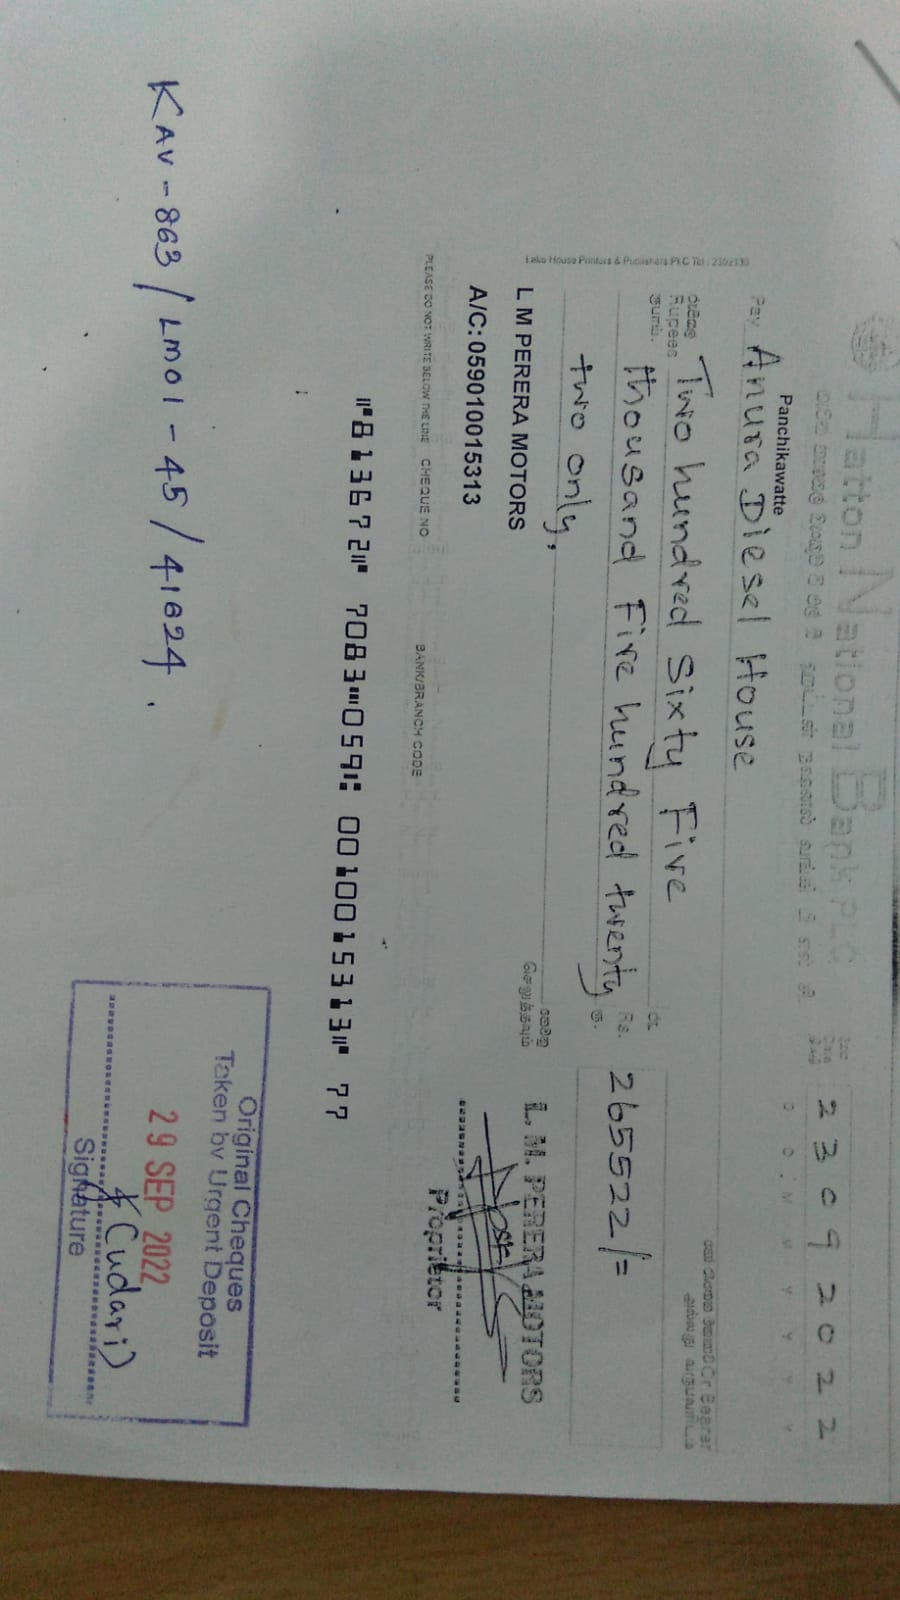 Hatton National Bank PLC
Panchikawatte
2 3 0 9 2 0 2 2
D D M M Y Y Y Y
Pay Anura Diesel House
Or Bearer
රුපියල්
Rupees Two hundred Sixty Five
ரூபாய். thousand Five hundred twenty
two only,
Rs. 265522/=
ரு.
Lake House Printers & Publishers PLC Tel : 2302139
L M PERERA MOTORS
L. M. PERERA MOTORS
A/C: 059010015313
Proprietor
PLEASE DO NOT WRITE BELOW THE LINE CHEQUE NO BANK/BRANCH CODE
⑈813672⑈ 7083⑉059⑆ 0010015313⑈ 77
Original Cheques
Taken by Urgent Deposit
29 SEP 2022
(Cudari)
Signature
KAV-863/LM01-45/41624.